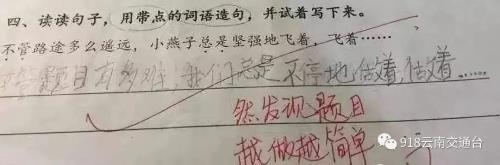 四、读读句子，用带点的词语造句，并试着写下来。
不管路途多么遥远，小燕子总是坚强地飞着，飞着……
不管题目有多难，我们总是不停地做着，做着……
然发现题目
越做越简单
918云南交通台